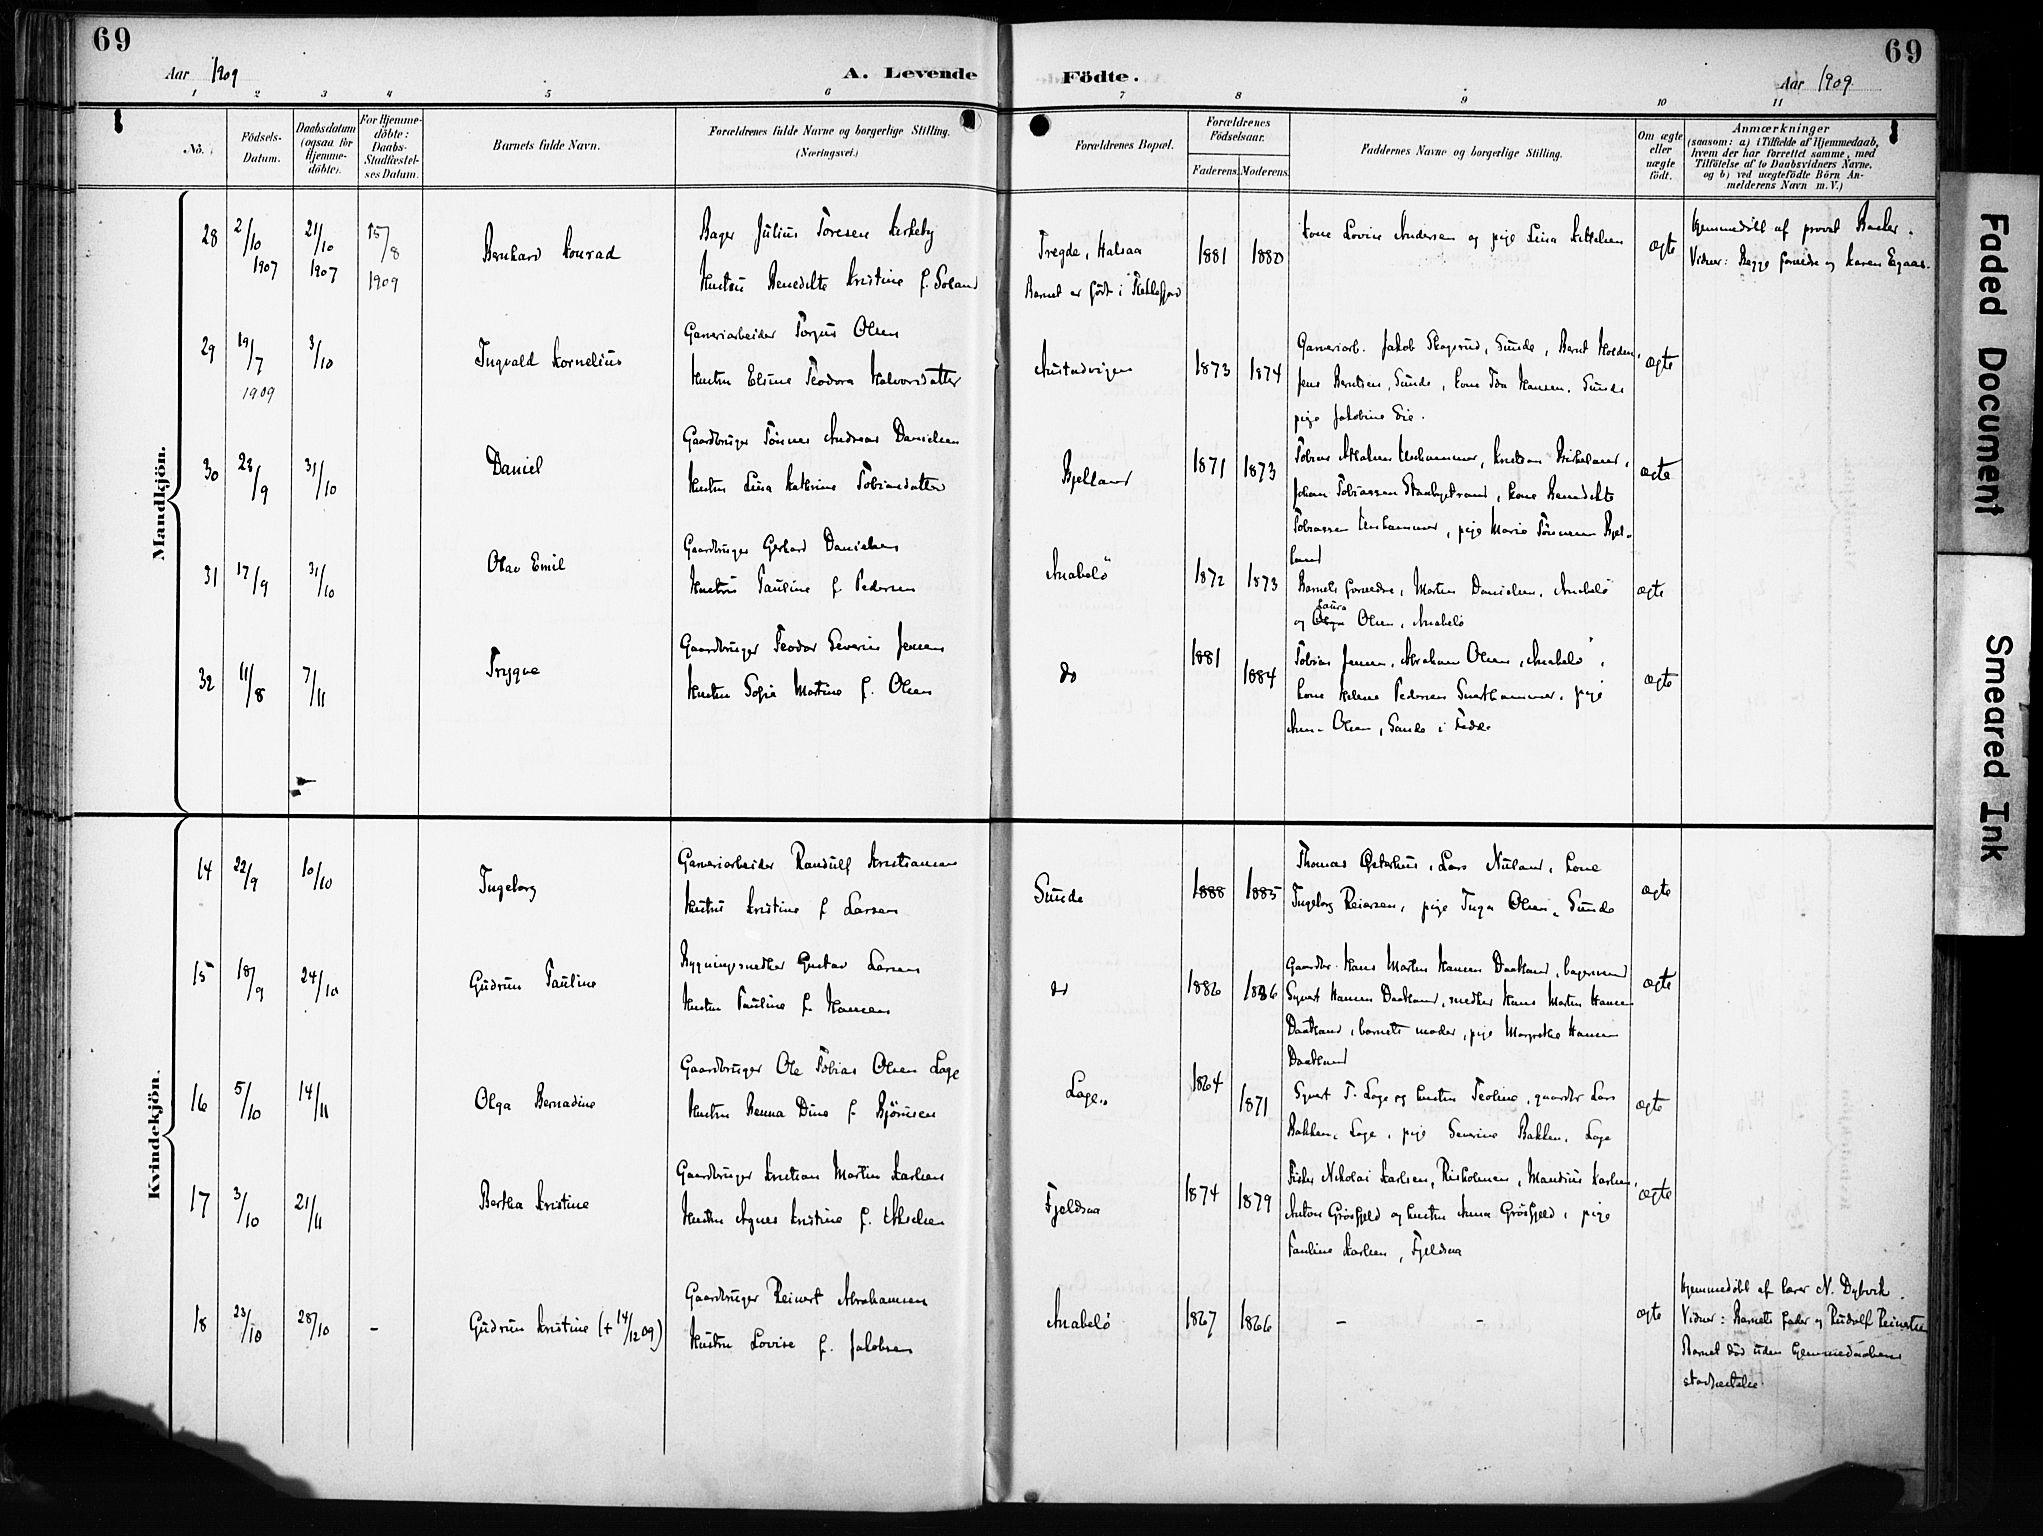 69
69
Aar 1909
A. Levende
Födte.
Aar 1909.
1 2 3 4 5 6 7 8 9 10 11
No.
Födsels-
Datum.
Daabsdatum
(ogsaa for
Hjemme-
döbte).
For Hjemme-
döbte:
Daabs-
Stadfæstel-
ses Datum.
Barnets fulde Navn.
Forældrenes fulde Navne og borgerlige Stilling.
(Næringsvei.)
Forældrenes Bopæl.
Forældrenes
Födselsaar.
Faderens.
Moderens.
Faddernes Navne og borgerlige Stilling.
Om ægte
eller
uægte
födt.
Anmærkninger
(saasom: a) i Tilfælde af Hjemmedaab,
hvem der har forrettet samme, med
Tilföielse af to Daabsvidners Navne.
og b) ved uægtefödte Börn An-
melderens Navn m. V.)
Mandkjön.
28 2/10 1907 21/10 1907 15/8 1909 Bernhard Konrad
Bager Julius Toresen Kirkeby
Hustru Benedikte Kristine f. Soland
Tregde, Halsaa
Barnet er født i Flekkefjord
1881 1880
Kone Lovise Andersen og pige Lina Kittelsen
ægte
Hjemmedøbt af provst Barler.
Vidner: Begge forældre og Karen Egaas.
29 19/7 1909 3/10 Ingvald Kornelius
Garveriarbeider Torgus Olsen
Hustru Elsine Teodora Halvorsdatter
Austadvigen
1873 1874
Garveriarb. Jakob Skogsrud, Sunde, Bernt Holden,
Jens Berntsen, Sunde, kone Toa Hansen, Sunde
pige Jakobine Eie.
ægte
30 23/9 31/10 Daniel
Gaardbruger Tönnes Andreas Danielsen
Hustru Lina Kathrine Tobiasdatter
Bjelland
1871 1873
Tobias Unhammer, Knutson Birkeland,
Johan Tobiassen Stranbystrand, kone Benedikte
Tobiassen Unhammer, pige Marie Tönnesen Bjel-
land
ægte
31 17/9 31/10 Olav Emil
Gaardbruger Gerhard Danielsen
Hustru Pauline f. Pedersen
Anabelö
1872 1873
Barnets forældre, Marten Danielsen, Anabelö
og Laura Olsen, Anabelö
ægte
32 11/8 7/11 Trygve
Gaardbruger Teodor Severin Jensen
Hustru Sofie Martine f. Olsen
do
1881 1884
Tobias Jensen, Abraham Olsen, Anabelö,
kone Helene Pedersen Svarthammer, pige
Anna Olsen, Sande i Fedde
ægte
Kvindekjön.
14 22/9 10/10 Ingeborg
Garveriarbeider Randulf Kristiansen
Hustru Kristine f Larsen
Sunde
1888 1885
Thomas Østerhus, Lars Nuland, kone
Ingeborg Reiersen, pige Inga Olsen, Sunde
ægte
15 18/9 24/10 Gudrun Pauline
Bygningssnedker Gustav Larsen
Hustru Pauline f. Hansen
do
1886 1886
Gaardbr. Hans Martin Hansen Daatland, bagersvend
Sigvart Hansen Daatland, snedker Hans Martin Hansen
Daatland, barnets moder, pige Margrethe Hansen
Daatland
ægte
16 5/10 14/11 Olga Bernadine
Gaardbruger Ole Tobias Olsen Loge
Hustru Berna Dine f Björnsen
Loge
1864 1871
Sigvart T. Loge og hustru Teoline, gaardbr Lars
Bakken, Loge, pige Severine Bakken, Loge
ægte
17 3/10 21/11 Bertha Kristine
Gaardbruger Kristian Martin Karlsen
Hustru Agnes Kristine f. Akselsen
Fjeldsaa
1874 1879
Fisker Nikolai Karlsen, Risholmen, Maudius Karlsen,
Anton Grösfjeld og hustru Anna Grösfjeld, pige
Pauline Karlsen, Fjeldsaa
ægte
18 23/10 28/10 - Gudrun Kristine (+ 14/12 09)
Gaardbruger Reinert Abrahamsen
Hustru Lovise f. Jakobsen
Anabelö
1867 1866
- -
ægte
Hjemmedøbt af lærer N. Dybvik.
Vidner: Barnets fader og Rudolf Reinertsen
Barnet död uden hjemmedaabens
stadfæstelse.
Faded Document
Smeared Ink